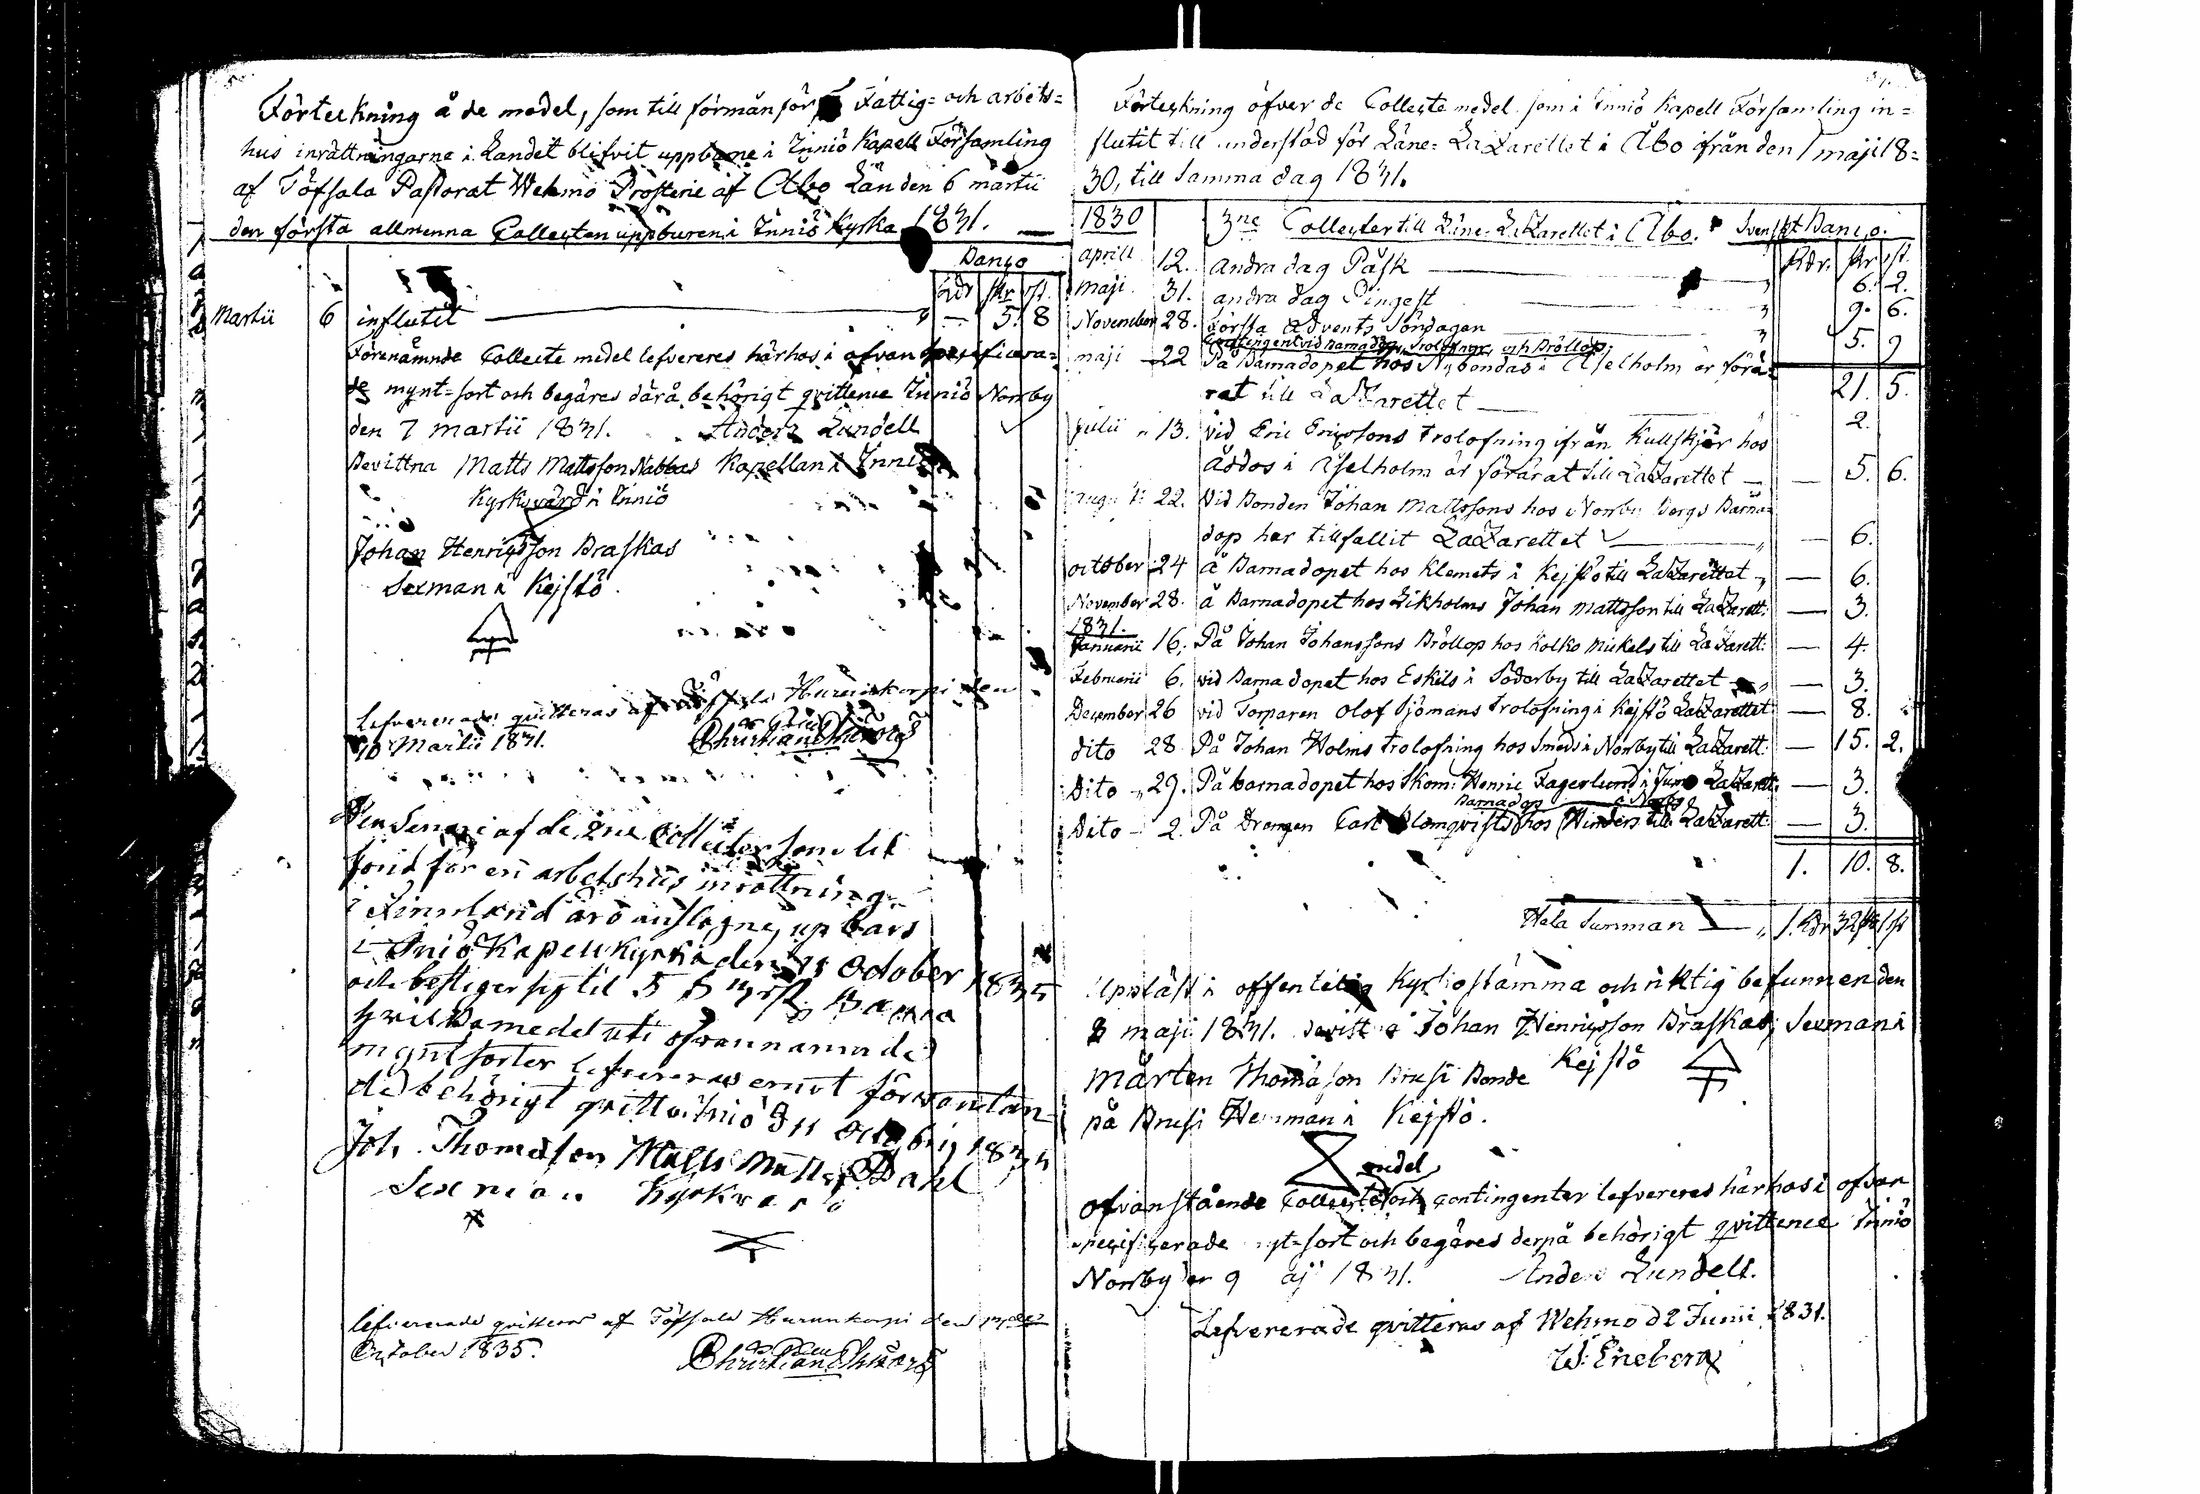 Förteckning å de medel, som till förmån för Fattig= och arbets=
hus inrättningarne i Landet blifvit uppburne i Inniö Kapell Församling
af Töfsala Pastorat Wehmo Prosterie af Åbo Län den 6 martii
den första allmenna Collecten uppburen i Inniö Kyrka 1831.
Banco
Rdr Skr rst.
Martii 6 influtit — 5. 8
Förenämnde Collecte medel lefvereres härhos i ofvan specificera=
de mynt=sort och begäres därå behörigt qvittence Inniö Norrby
den 7 martii 1831. Anders Lundell
Bevittna Matts Mattsson Nabbas Kapellan i Inniö
Kyrkovärd i Inniö
Johan Henricsson Braskas
Sexman i Kejstö
lefvererade qvitteras af Töfsala Hurunkorpi den
10 Martii 1831. Christian
Den Senare af de 2ne Collecter som til
fond för en arbetshus inrättning
i Finnland äro anslagne, up bars
i Iniö Kapell kyrka den 11 October 1835
och bestiger sig til 5 s rst. Banco
hvilka medel uti ofvannämnde
mynt sorter lefvereras emot församlan
de behörigt qvitto Iniö d 11 Octobris 1835
Joh. Thomasson Matts Matts Dahl
Sexman Kyrkvärd
lefvererade qvitteras af Töfsala Hurunkorpi den
October 1835. Christian
Förteckning öfver de Collecte medel som i Inniö Kapell Församling in=
flutit till understöd för Läne= LaZarettet i Åbo ifrån den 1 maji 18=
30, till samma dag 1831.
1830 3ne Collecter till Läne LaZarettet i Åbo. Svenskt Banco.
Rdr. Skr rst.
Aprill 12. Andra dag Påsk — 6. 2.
Maji 31. andra dag Pingest — 9. 6.
November 28. Första Advents Söndagen — 5. 9
Contingent vid Barnadop, Trolofningar, och Bröllop.
21. 5.
maji 22 På Barnadopet hos Nybondas i Åselholm är förä=
rat till LaZarettet — 2.
Julii 13. vid Eric Ericssons Trolofning ifrån Kullskjär hos
Åddos i Åselholm är förärat till LaZarettet — 5. 6.
22. Vid Bonden Johan Mattssons hos Norrby Bergs Barna=
dop har tillfallit LaZarettet — 6.
october 24 å Barnadopet hos Klemets i Kejstö till LaZarettet — 6.
November 28. å Barnadopet hos Likholms Johan Mattsson till LaZarett: — 3.
1831.
Januarii 16. På Johan Johanssons Bröllop hos Kolko Mickels till LaZarett: — 4.
Februarii 6. vid Barnadopet hos Eskils i Söderby till LaZarettet — 3.
December 26 vid Torparen Olof Sjömans Trolofning i Kejstö LaZarettet — 8.
dito 28. På Johan Holms Trolofning hos Smeds i Norrby till LaZarett: — 15. 2.
Dito 29. På barnadopet hos Skom: Henric Fagerlund i LaZarett: — 3.
Barnadop
Dito 2. På Drengen Carl Blomqvists hos Hinders till LaZarett: — 3.
1. 10. 8.
Hela Summan — 1. Rdr 32 sk 1 st
Upläst i offentelig Kyrkostämma och riktig befunnen den
8 maji 1831. bevittna Johan Henricsson Braskas, Sexman i
Kejstö
Mårten Thomasson Brusi Bonde
på Brusi Hemman i Kejstö.
medel
ofvanstående Collecte och Contingenter lefvereres härhos i ofvan
specificerade mynt=sort och begäres derpå behörigt qvittence Inniö
Norrby den 9 maji 1831. Anders Lundell.
Lefvererade qvitteras af Wehmo d 2 Junii 1831.
W. Eneberg